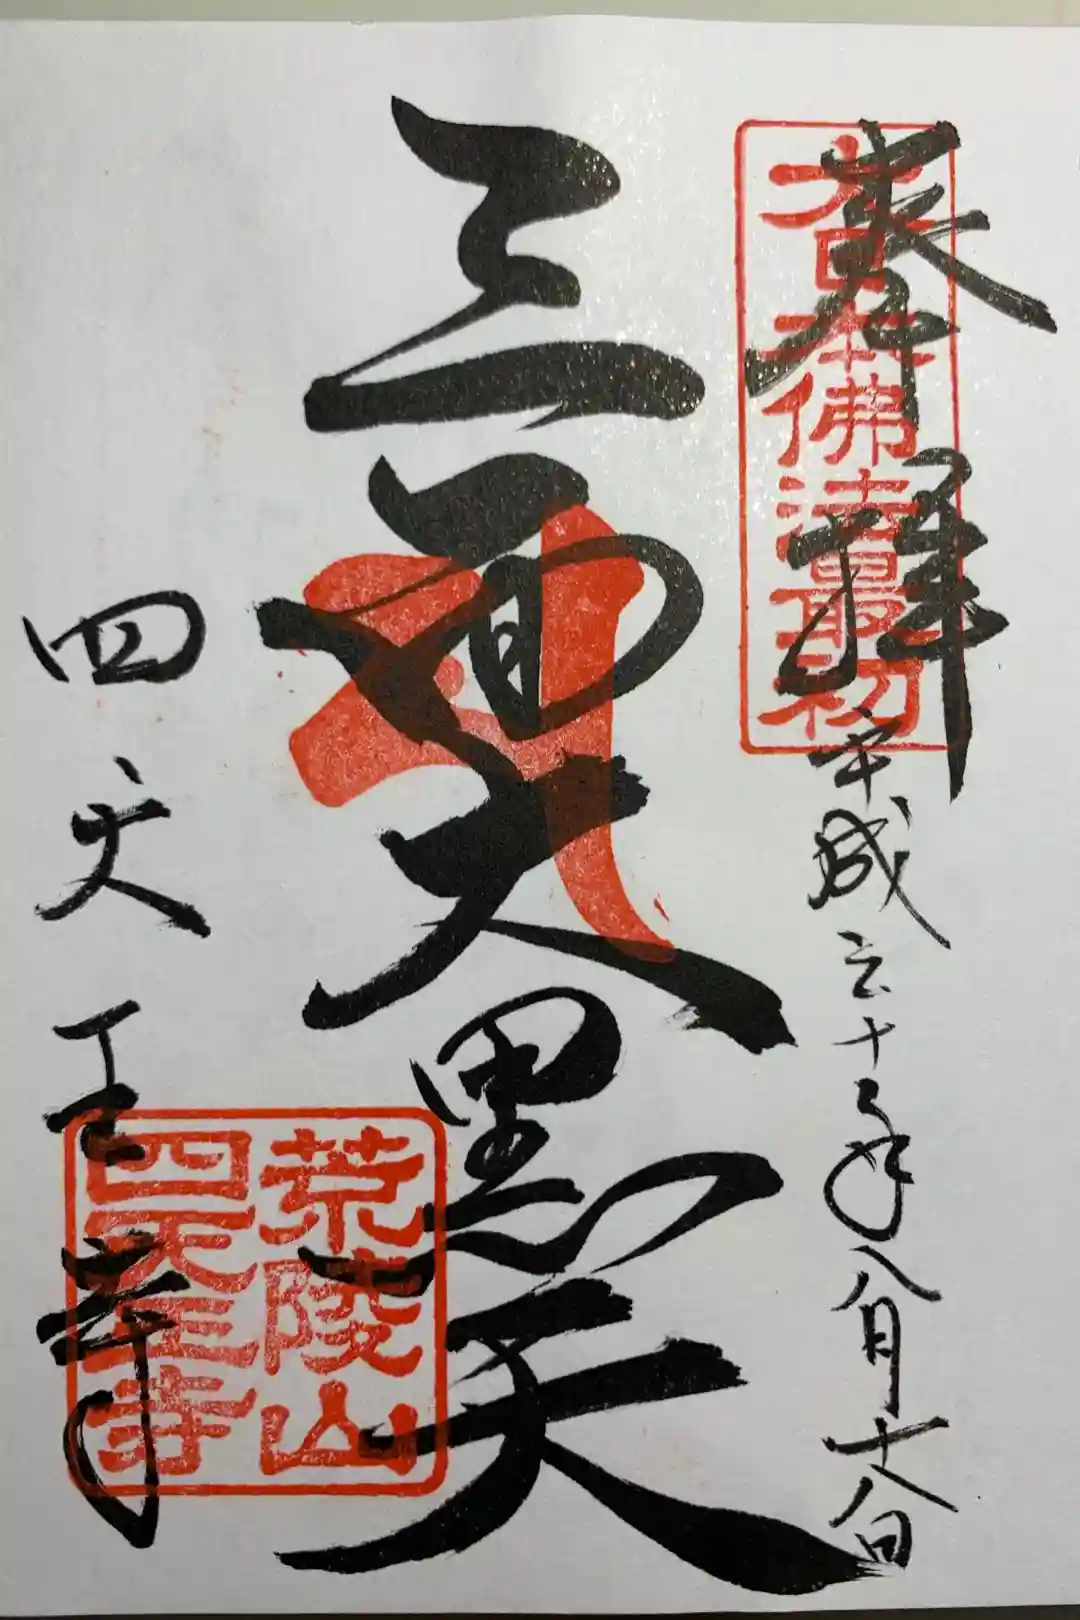 奉拝
大日本佛法最初
平成三十年八月十八日
三面大黒天
荒陵山
四天王寺
四天王寺